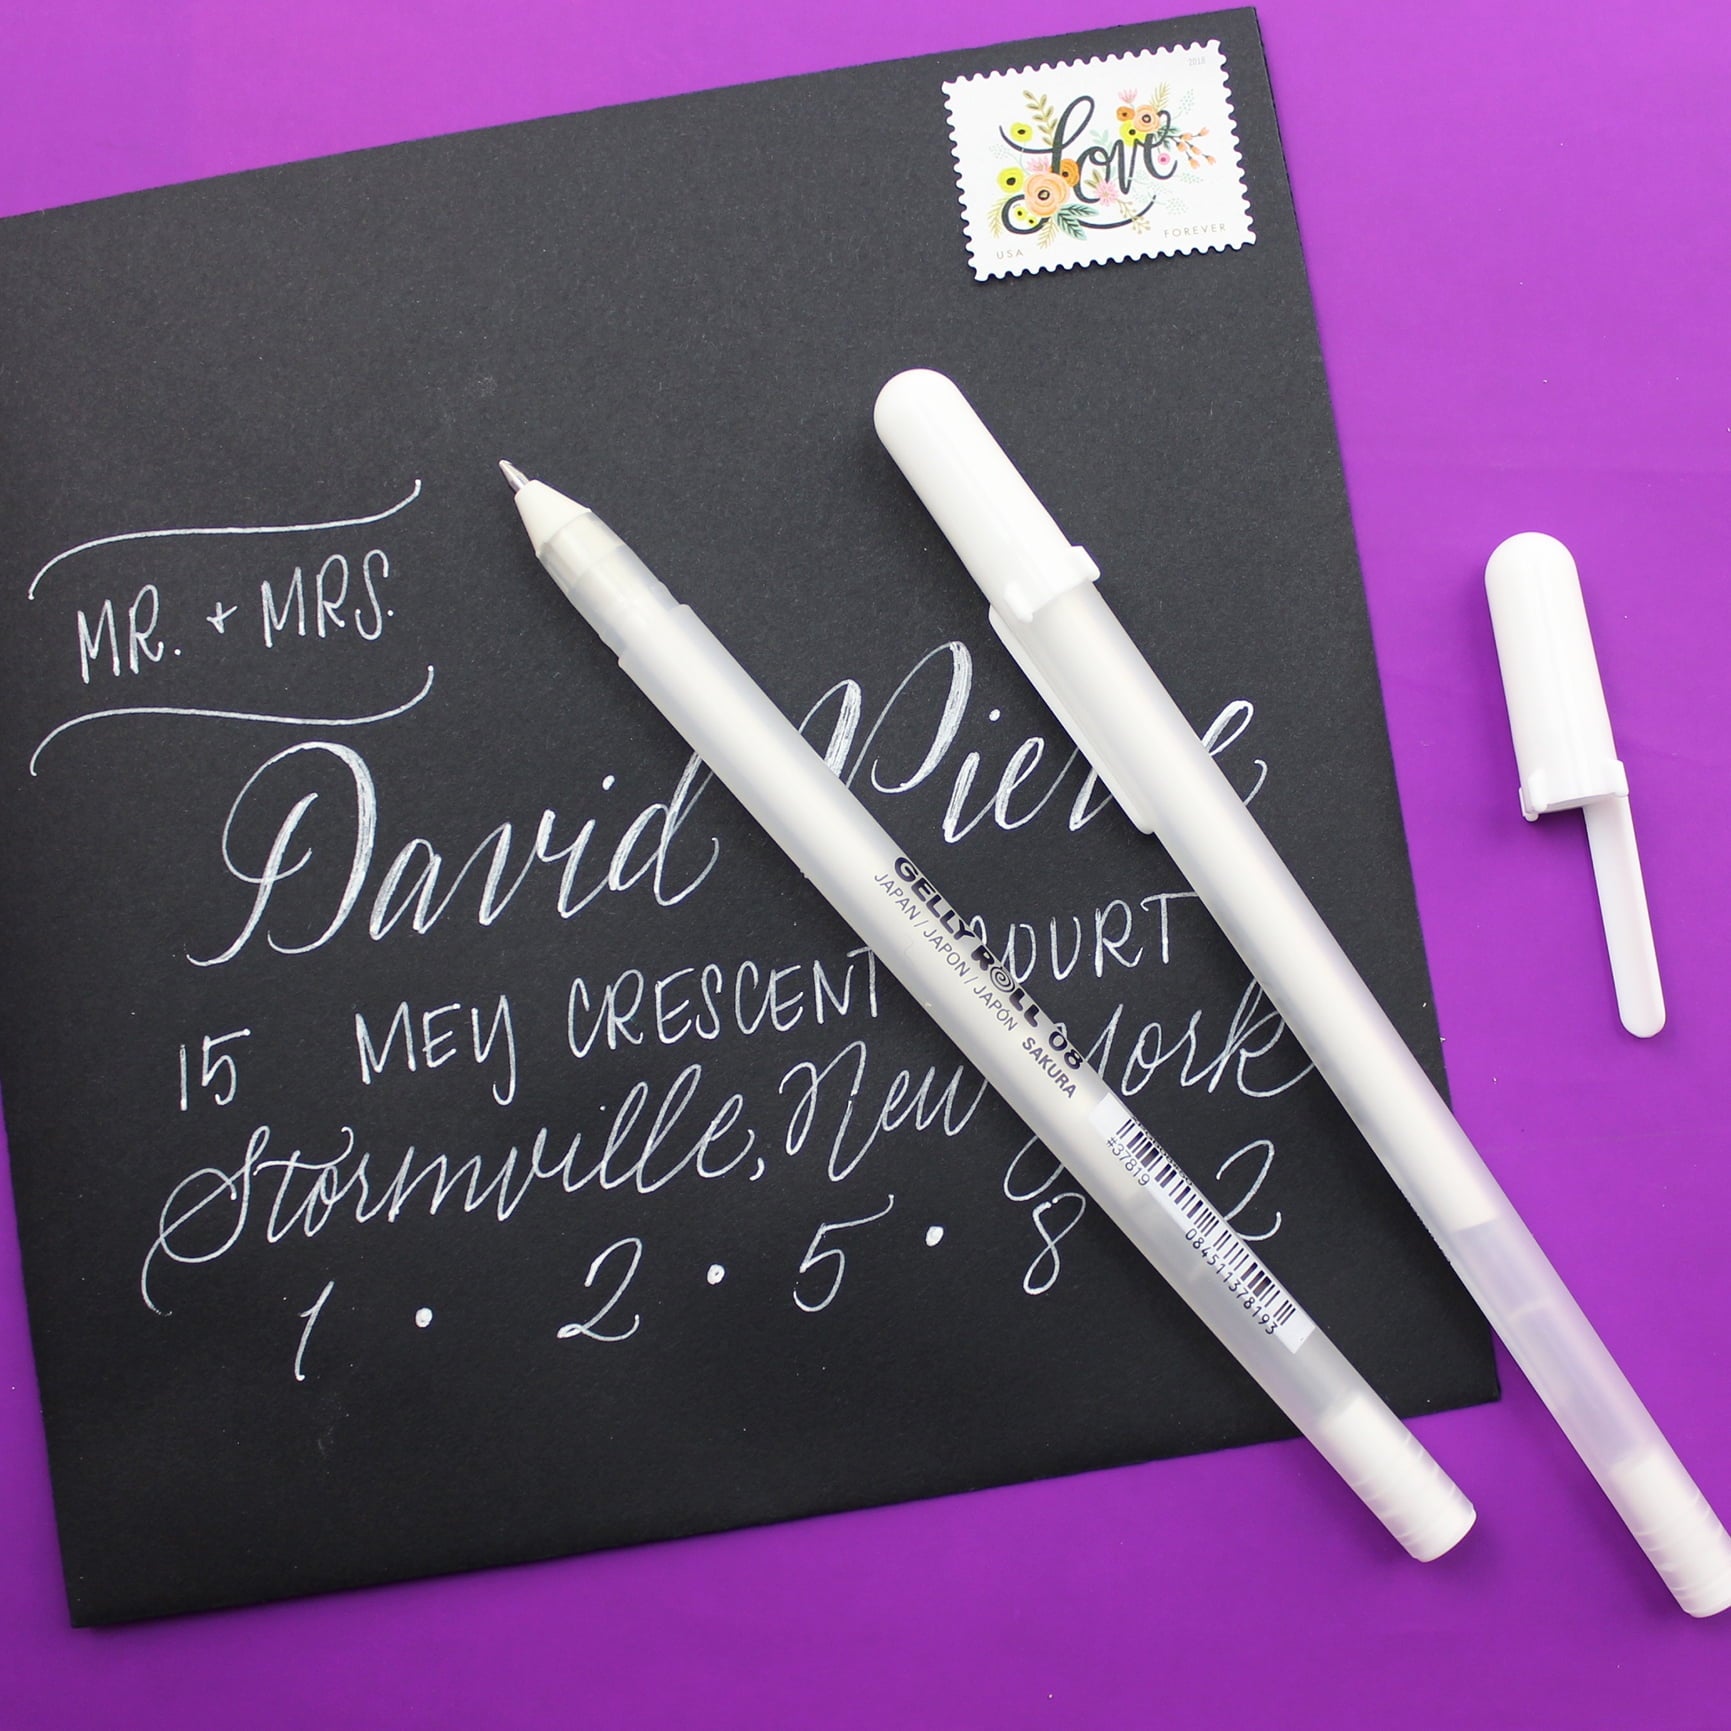 2018
Love
USA FOREVER
MR. + MRS.
David
15 MEY CRESCENT COURT
Stormville, New York
1 • 2 • 5 • 8 2
GELLY ROLL 08
JAPAN / JAPON / JAPÓN SAKURA
#37819
084511378193